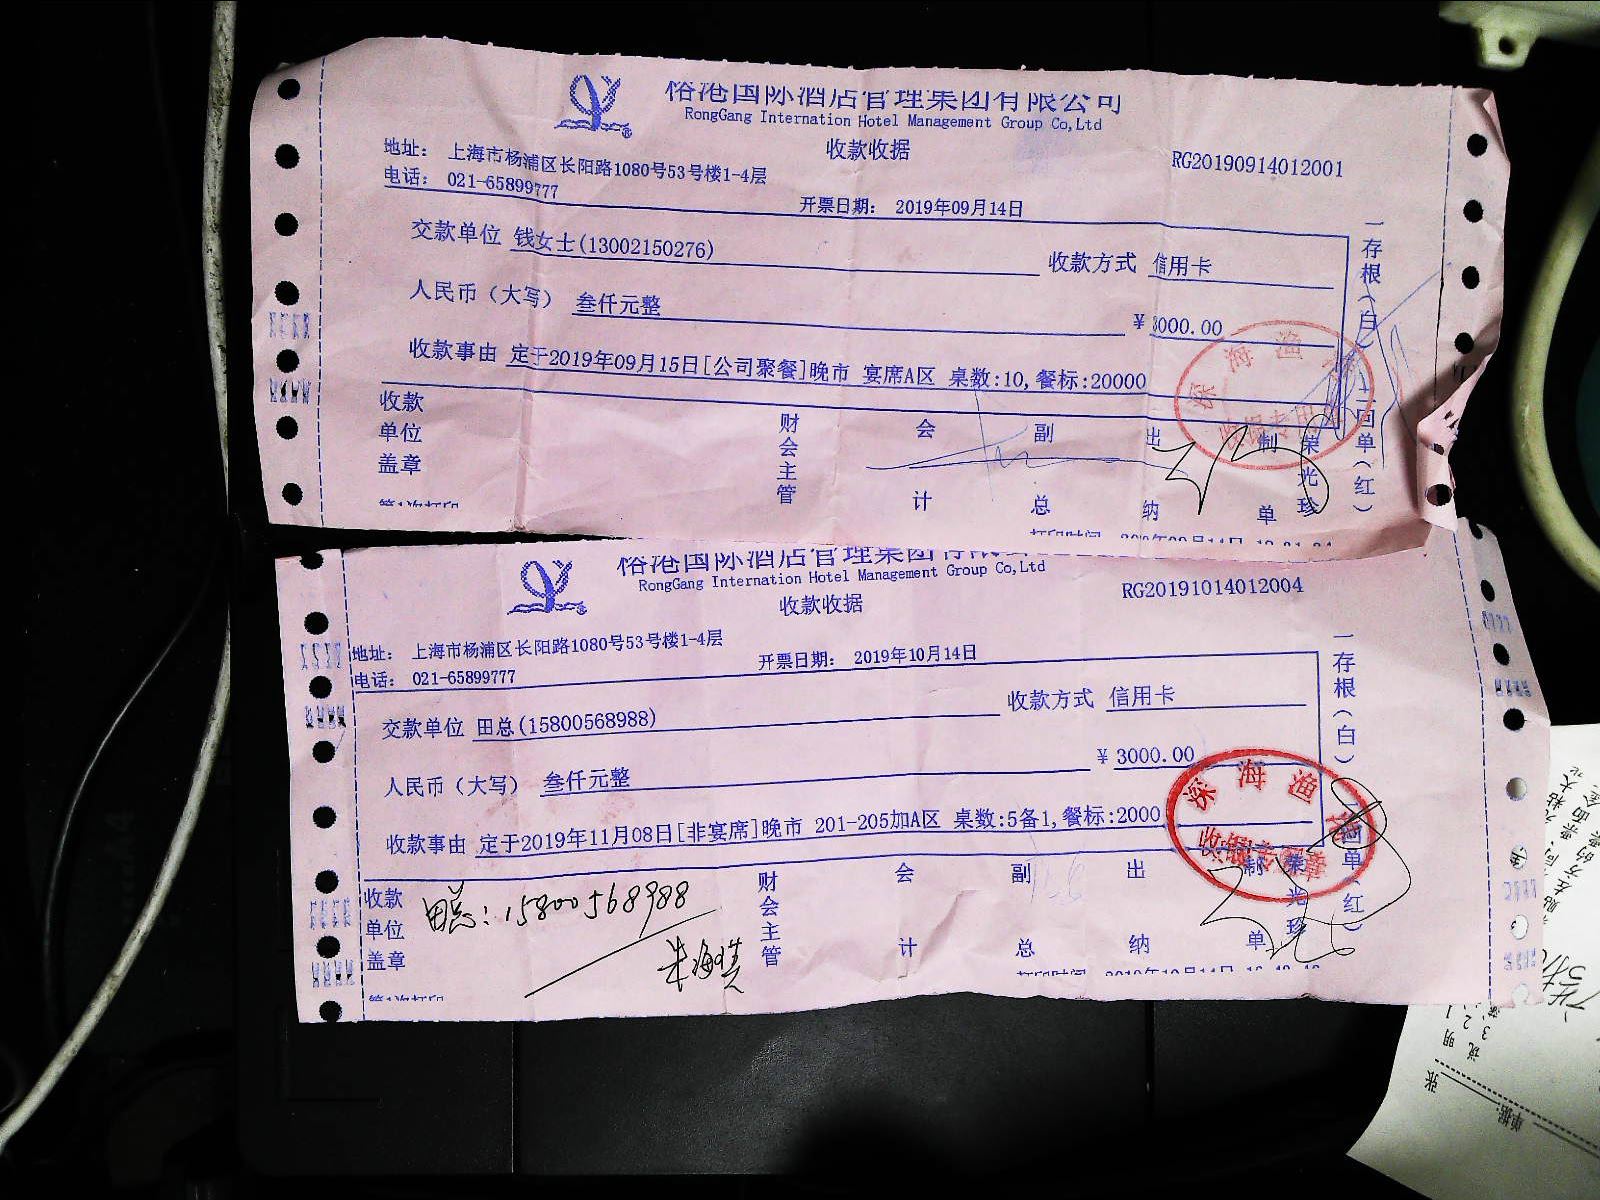 榕港国际酒店管理集团有限公司
RongGang Internation Hotel Management Group Co,Ltd
收款收据
RG20190914012001
地址: 上海市杨浦区长阳路1080号53号楼1-4层
电话: 021-65899777
开票日期: 2019年09月14日
交款单位 钱女士(13002150276)
收款方式 信用卡
人民币(大写) 叁仟元整
¥ 3000.00
收款事由 定于2019年09月15日[公司聚餐]晚市 宴席A区 桌数:10,餐标:20000
收款单位盖章
财会主管
会计
副总
出纳
制单
荣光珍
一存根(白)
二回单(红)
深海渔
第1次打印
榕港国际酒店管理集团有限公司
RongGang Internation Hotel Management Group Co,Ltd
收款收据
RG20191014012004
地址: 上海市杨浦区长阳路1080号53号楼1-4层
电话: 021-65899777
开票日期: 2019年10月14日
交款单位 田总(15800568988)
收款方式 信用卡
人民币(大写) 叁仟元整
¥ 3000.00
收款事由 定于2019年11月08日[非宴席]晚市 201-205加A区 桌数:5备1,餐标:2000
收款单位盖章
田总:15800568988
财会主管
会计
副总
出纳
制单
荣光珍
一存根(白)
回单(红)
深海渔
第1次打印